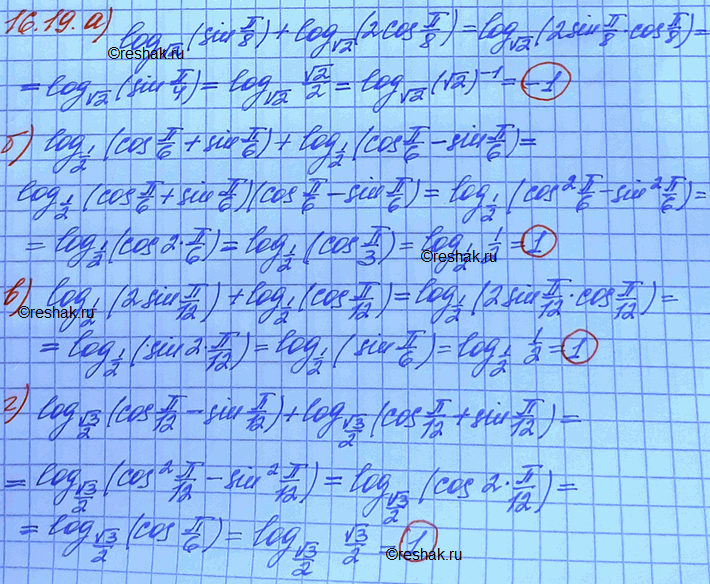 16.19. а) log_√2 (sin π/8) + log_√2 (2cos π/8) = log_√2 (2sin π/8 · cos π/8) =
©reshak.ru
= log_√2 (sin π/4) = log_√2 √2/2 = log_√2 (√2)^-1 = -1
б) log_1/2 (cos π/6 + sin π/6) + log_1/2 (cos π/6 - sin π/6) =
log_1/2 (cos π/6 + sin π/6)(cos π/6 - sin π/6) = log_1/2 (cos² π/6 - sin² π/6) =
= log_1/2 (cos 2 · π/6) = log_1/2 (cos π/3) = log_1/2 1/2 = 1
©reshak.ru
в) log_1/2 (2sin π/12) + log_1/2 (cos π/12) = log_1/2 (2sin π/12 · cos π/12) =
©reshak.ru
= log_1/2 (sin 2 · π/12) = log_1/2 (sin π/6) = log_1/2 1/2 = 1
г) log_√3/2 (cos π/12 - sin π/12) + log_√3/2 (cos π/12 + sin π/12) =
= log_√3/2 (cos² π/12 - sin² π/12) = log_√3/2 (cos 2 · π/12) =
= log_√3/2 (cos π/6) = log_√3/2 √3/2 = 1
©reshak.ru